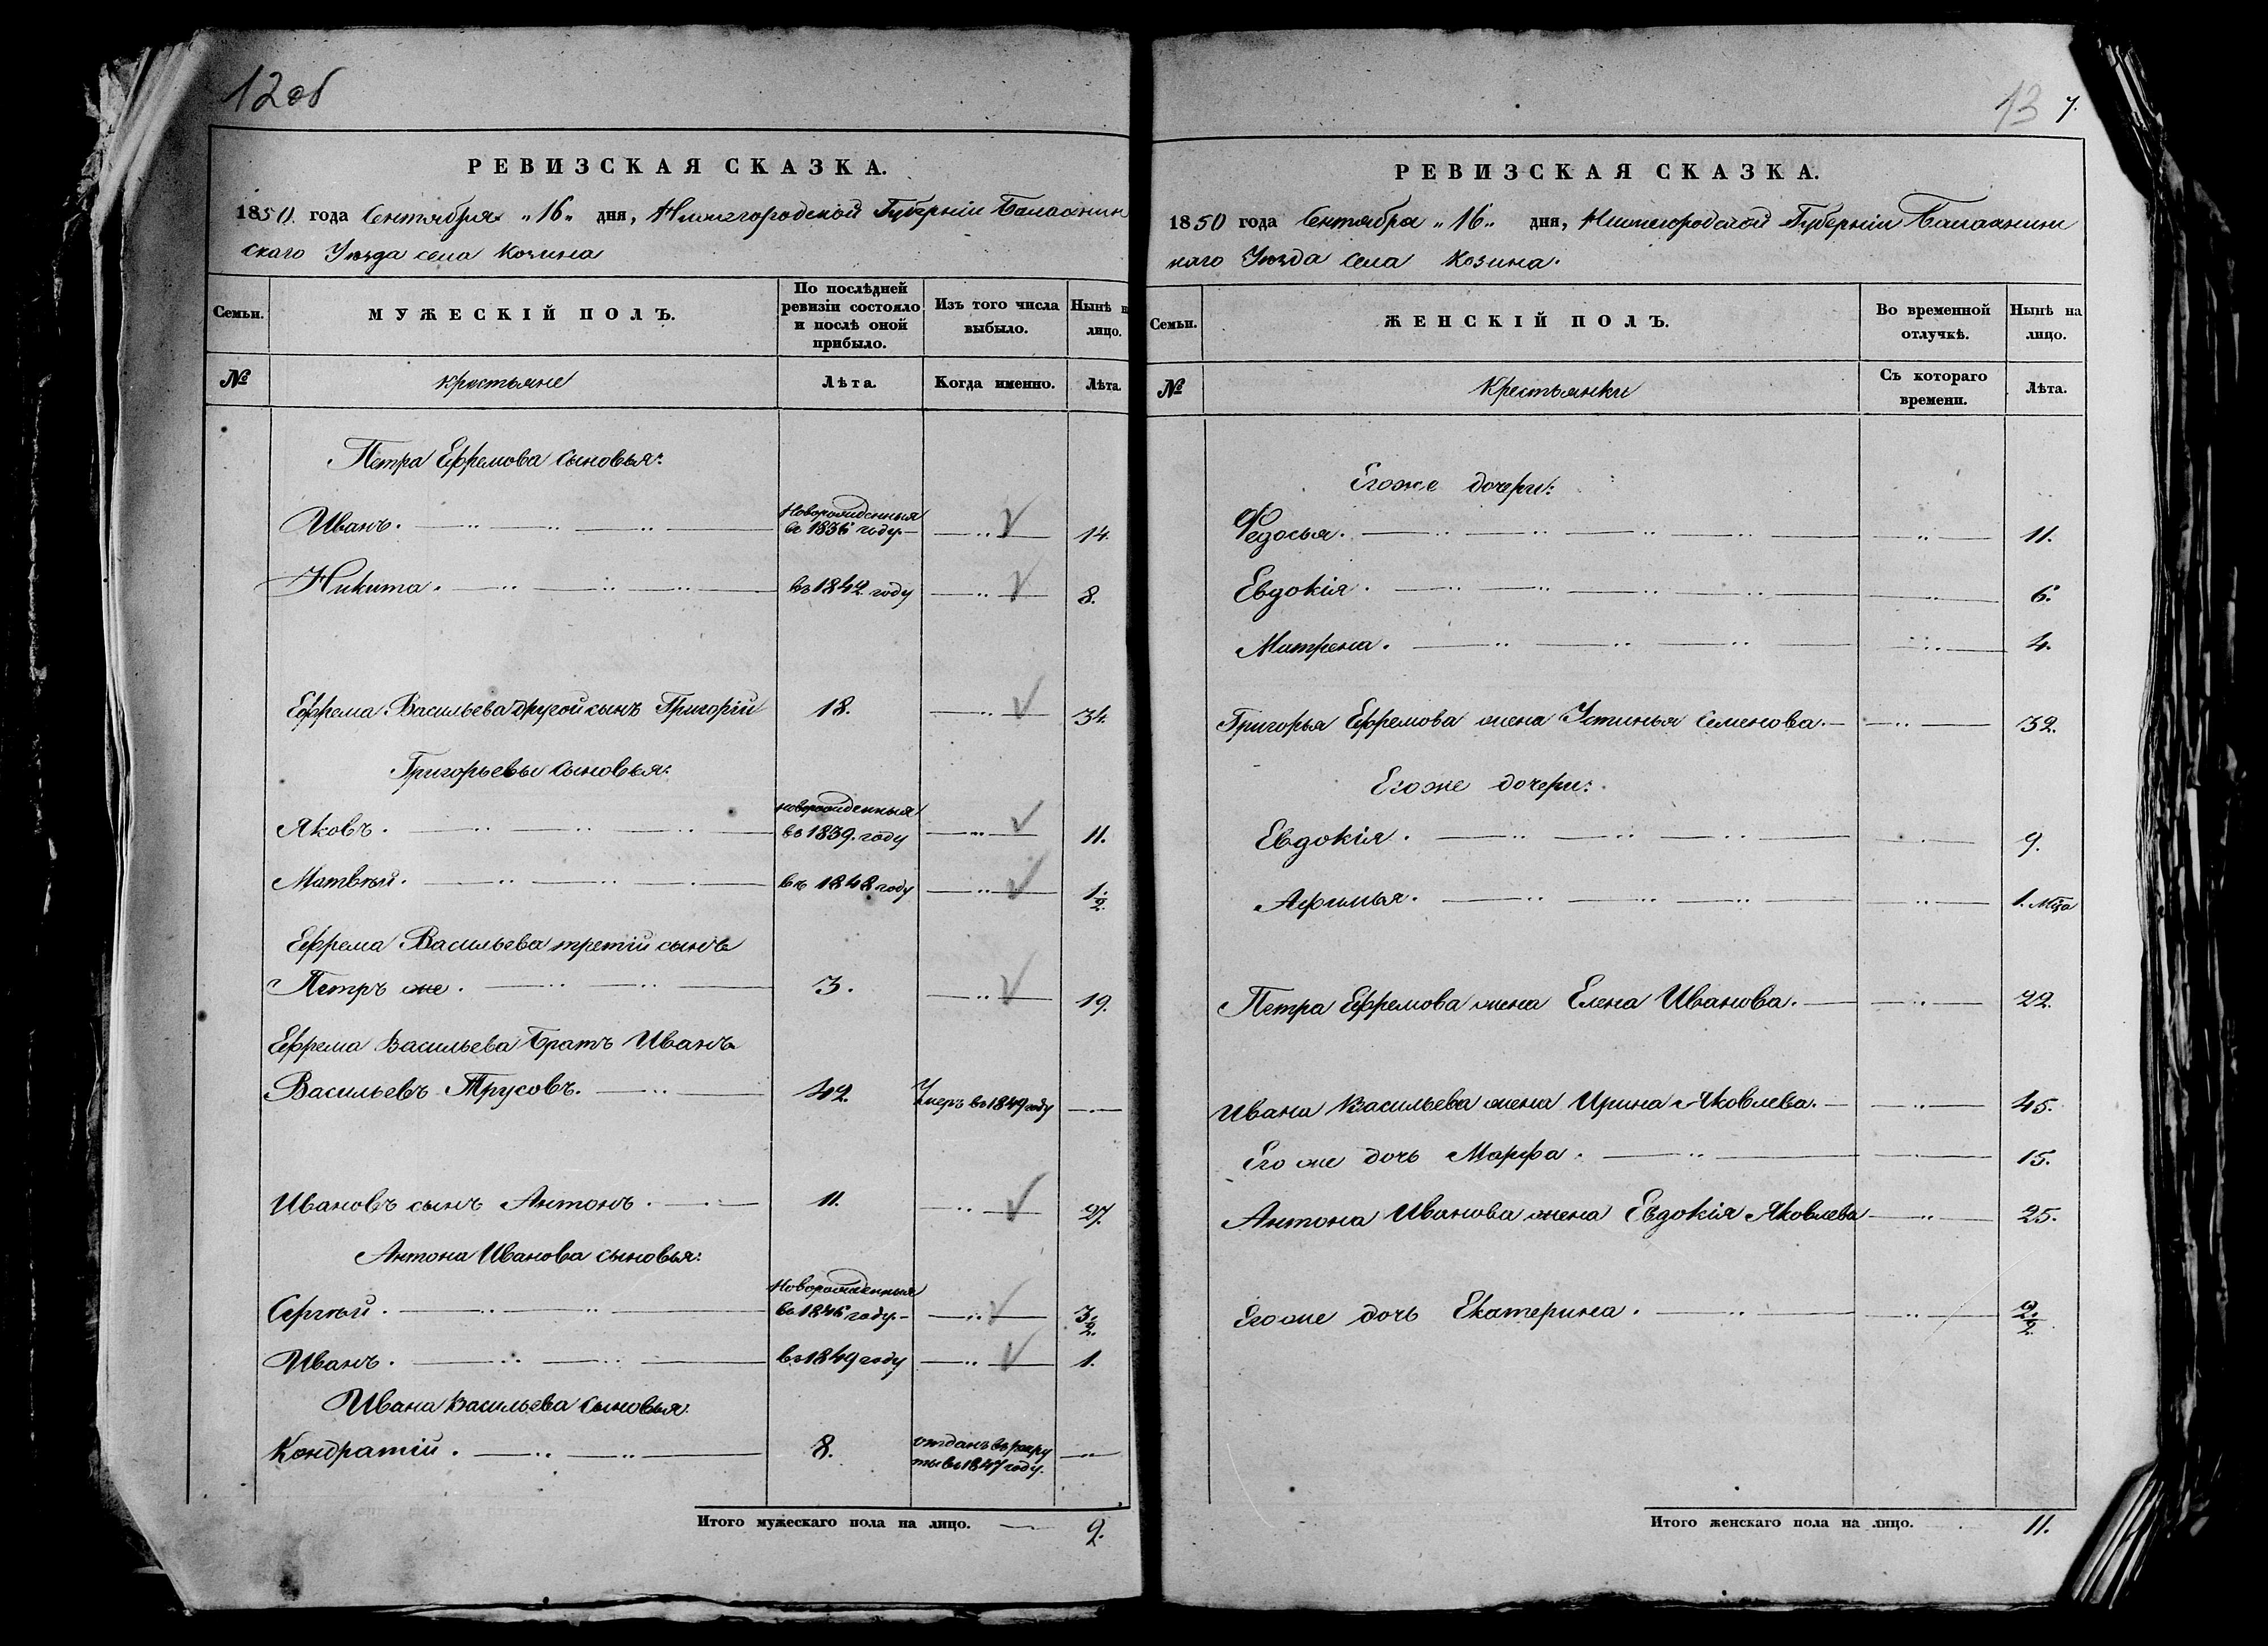 12об
РЕВИЗСКАЯ СКАЗКА.
1850 года Сентября „16„ дня, Нижегородской Губерніи Балахнин
скаго Уѣзда села Козина
Семьи.
МУЖЕСКІЙ ПОЛЪ.
По послѣдней
ревизіи состояло
и послѣ оной
прибыло.
Изъ того числа
выбыло.
Нынѣ н
лицо.
№
крестьяне
Лѣта.
Когда именно.
Лѣта.
Петра Ефремова сыновья:
Иванъ.
Новорожденныя
въ 1836 году.
14.
Никита.
въ 1842 году
8.
Ефрема Васильева другой сынъ Григорій
18.
34
Григорьевы сыновья:
Яковъ.
новорожденныя
въ 1839. году
11.
Матвѣй.
въ 1848 году
1.
2.
Ефрема Васильева третій сынъ
Петръ же.
3.
19.
Ефрема Васильева Братъ Иванъ
Васильевъ Трусовъ.
42.
Умеръ въ 1849 году
Ивановъ сынъ Антонъ.
11.
27.
Антона Иванова сыновья:
Сергѣй.
Новорожденныя
въ 1846 году.
3.
2.
Иванъ.
въ 1849 году
1.
Ивана Васильева сыновья.
Кондратій.
8.
отданъ въ рекру
ты въ 1847 году.
Итого мужескаго пола на лицо.
9.
13
7.
РЕВИЗСКАЯ СКАЗКА.
1850 года Сентября „16„ дня, Нижегородской Губерніи Балахнин
каго Уѣзда Села Козина.
Семьи.
ЖЕНСКІЙ ПОЛЪ.
Во временной
отлучкѣ.
Нынѣ на
лицо.
№
Крестьянки
Съ котораго
времени.
Лѣта.
Егоже дочери:
Федосья.
11.
Евдокія.
6.
Матрена.
4.
Григорья Ефремова жена Устинья Семенова.
32.
Егоже дочери:
Евдокія.
9.
Афимья.
1. мѣца
Петра Ефремова жена Елена Иванова.
22.
Ивана Васильева жена Ирина Яковлева.
45.
Его же дочь Марфа.
15.
Антона Иванова жена Евдокія Яковлева
25.
Егоже дочь Екатерина.
2.
2.
Итого женскаго пола на лицо.
11.